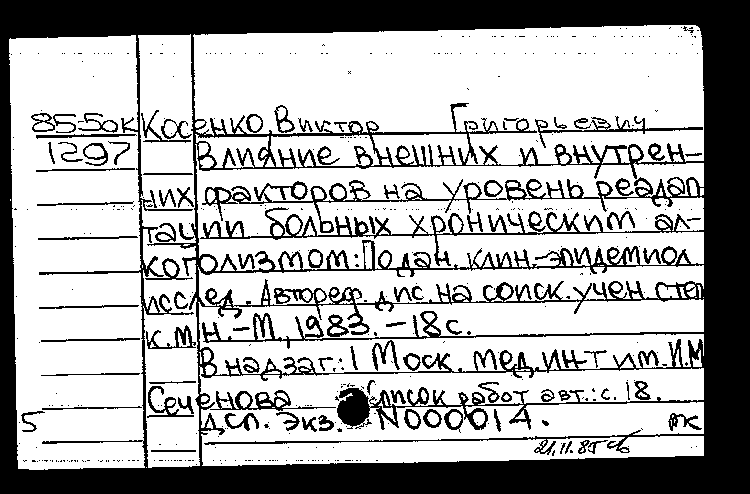 85-5ок Косенко, Виктор Григорьевич
1297 Влияние внешних и внутрен-
них факторов на уровень реадап
тации больных хроническим ал-
коголизмом: По дан. клин.-эпидемиол
исслед. Автореф. дис. на соиск. учен. степ
к.м.н. -М., 1983. -18 с.
В надзаг.: 1 Моск. мед. ин-т им. И.М
Сеченова Список работ авт.: с. 18.
5 Д.сп. экз. N000014. рж
21.11.85